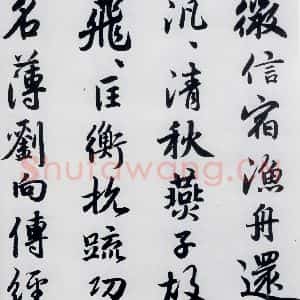 微信宿漁舟還
汎、清秋燕子故
飛、匡衡抗疏功
名薄劉向傳經
Shufawang.cn